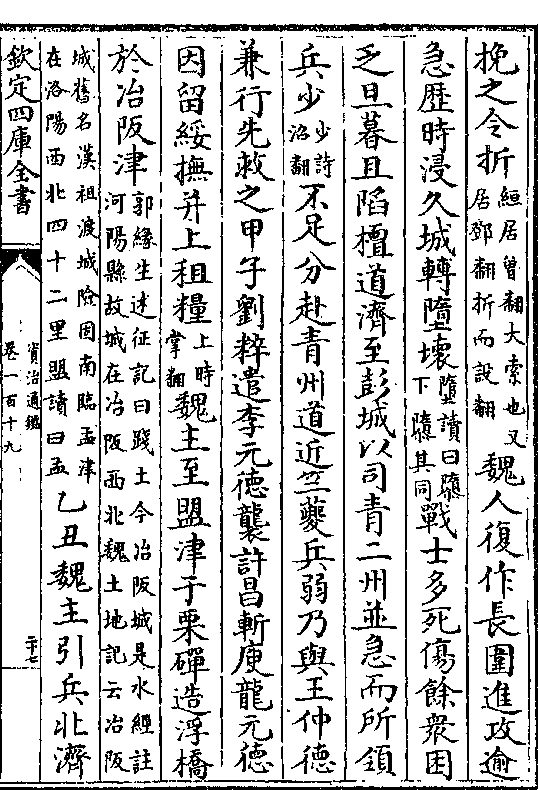 挽之令折絙居曾翻大索也又居鄧翻折而設翻魏人復作長圍進攻逾
急歴時浸久城轉墮壊墮讀曰隳下隳其同戰士多死傷餘衆困
乏旦暮且陷檀道濟至彭城以司青二州並急而所領
兵少少詩沼翻不足分赴青州道近竺夔兵弱乃與王仲德
兼行先救之甲子劉粹遣李元徳襲許昌斬庾龍元徳
因留綏撫并上租糧上時掌翻魏主至盟津于栗磾造浮橋
於冶阪津郭縁生述征記曰踐土今冶阪城是水經註河陽縣故城在冶阪西北魏土地記云冶阪
城舊名漢祖渡城險固南臨孟津在洛陽西北四十二里盟讀曰孟乙丑魏主引兵北濟
欽定四庫全書
資治通鑑
卷一百十九
二十七